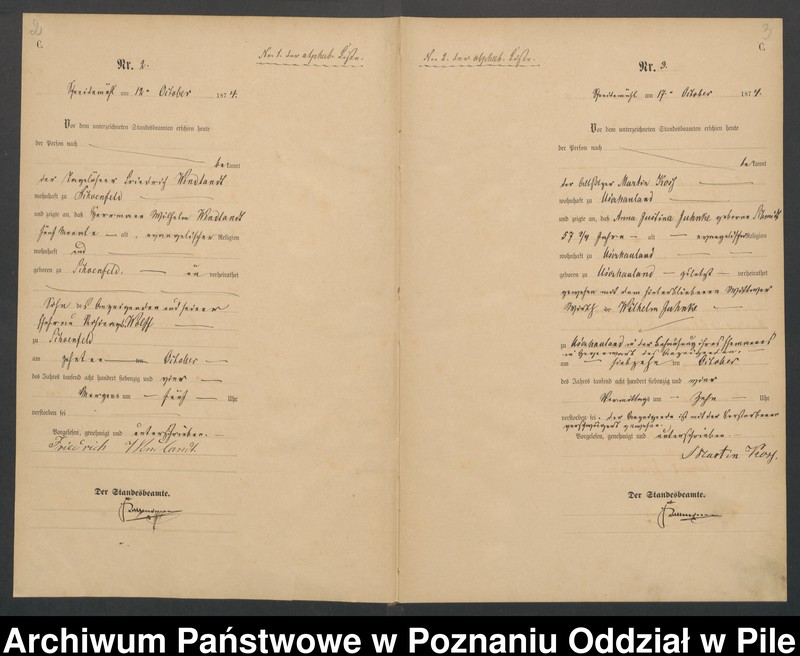 2
C.
Nr. 2.
Nr. 1. der alphab. Liste.
am 12ten October 1874.
Vor dem unterzeichneten Standesbeamten erschien heute
der Person nach
bekannt
der Friedrich Windlandt
wohnhaft zu Schoenfeld
und zeigte an, daß Herrmann Wilhelm Windlandt
fünf Monate alt, evangelischer Religion
wohnhaft und
geboren zu Schoenfeld. un verheirathet
Sohn des Anzeigenden und seiner
Ehefrau Wolff
zu Schoenfeld
am zehnten October
des Jahres tausend acht hundert siebenzig und vier
Morgens um fünf Uhr
verstorben sei
Vorgelesen, genehmigt und unterschrieben.
Friedrich
Der Standesbeamte.
3
C.
Nr. 2. der alphab. Liste.
Nr. 3.
am 17ten October 1874.
Vor dem unterzeichneten Standesbeamten erschien heute
der Person nach
bekannt
der Martin
wohnhaft zu Uschhauland
und zeigte an, daß Anna Justina Juhnke geborene
57 3/4 Jahre alt evangelischer Religion
wohnhaft zu Uschhauland
geboren zu Uschhauland zuletzt verheirathet
gewesen mit dem hinterbliebenen Wittwer
Wirth Wilhelm Juhnke
zu Uschhauland in der Behausung ihres Ehemannes
in Gegenwart des Anzeigenden,
am October
des Jahres tausend acht hundert siebenzig und vier
Vormittags um zehn Uhr
verstorben sei. der Anzeigende ist mit der Verstorbenen
verschwägert gewesen.
Vorgelesen, genehmigt und unterschrieben
Martin
Der Standesbeamte.
Archiwum Państwowe w Poznaniu Oddział w Pile